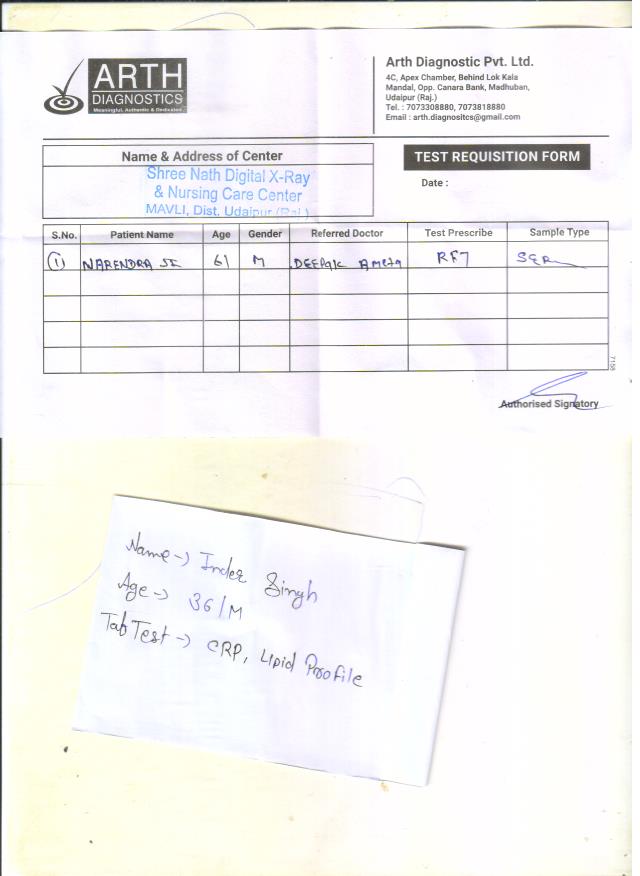 ARTH
DIAGNOSTICS
Meaningful, Authentic & Dedicated
Arth Diagnostic Pvt. Ltd.
4C, Apex Chamber, Behind Lok Kala
Mandal, Opp. Canara Bank, Madhuban,
Udaipur (Raj.)
Tel. : 7073308880, 7073818880
Email : arth.diagnositcs@gmail.com
Name & Address of Center
Shree Nath Digital X-Ray
& Nursing Care Center
MAVLI, Dist. Udaipur (Raj.)
TEST REQUISITION FORM
Date :
S.No. Patient Name Age Gender Referred Doctor Test Prescribe Sample Type
1 NARENDRA 61 M DEEPAK Ameta RFT SER
7158
Authorised Signatory
Name → Inder Singh
Age → 36/M
Tab Test → CRP, Lipid Profile